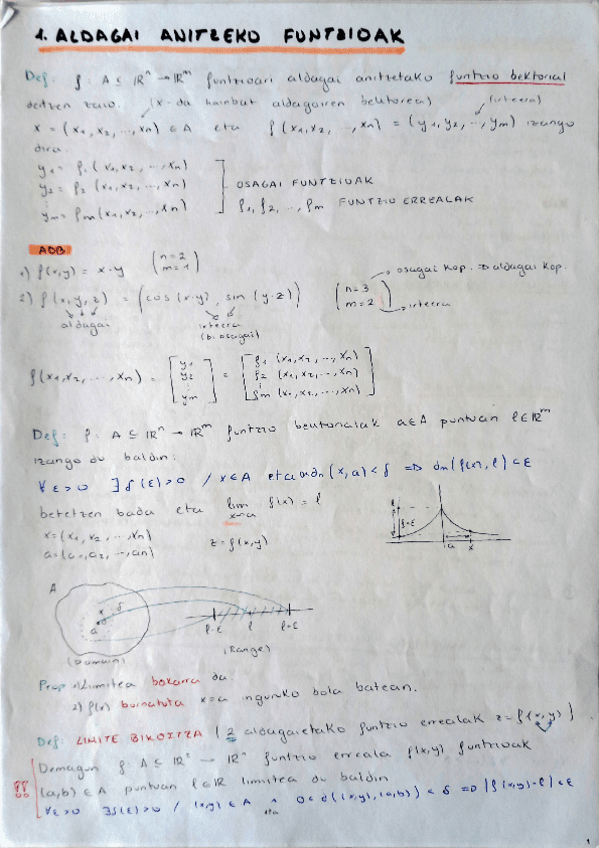 1. ALDAGAI ANITZEKO FUNTZIOAK
Def: f: A ⊆ ℝⁿ → ℝᵐ funtzioari aldagai anitzetako funtzio bektorial
deitzen zaio. (x da hainbat aldagairen bektorea) (irteera)
x = (x1, x2, ..., xn) ∈ A eta f(x1, x2, ..., xn) = (y1, y2, ..., ym) izango
dira.
y1 = f1(x1, x2, ..., xn)
y2 = f2(x1, x2, ..., xn) OSAGAI FUNTZIOAK
ym = fm(x1, x2, ..., xn) f1, f2, ..., fm FUNTZIO ERREALAK
ADB
1) f(x,y) = x·y (n=2 m=1) osagai kop. ⇒ aldagai kop.
2) f(x,y,z) = (cos(x·y), sin(y·z)) (n=3 m=2) irteera
aldagai irteera
(bi osagai)
f(x1, x2, ..., xn) = [y1 y2 ⋮ ym] = [f1(x1, x2, ..., xn) f2(x1, x2, ..., xn) ⋮ fm(x1, x2, ..., xn)]
Def: f: A ⊆ ℝⁿ → ℝᵐ funtzio bektorialak a∈A puntuan l∈ℝᵐ
izango du baldin:
∀ε>0 ∃δ(ε)>0 / x∈A eta dn(x,a)<δ ⇒ dm(f(x),l)<ε
betetzen bada eta lim x→a f(x) = l
x = (x1, x2, ..., xn) z = f(x,y)
a = (a1, a2, ..., an)
l f-ε a x
A
x δ
a l-ε l l+ε
(Domain) (Range)
Prop: 1) Limitea bakarra da.
2) f(x) bornatuta x=a inguruko bola batean.
Def: LIMITE BIKOITZA (2 aldagaietako funtzio errealak z=f(x,y))
Demagun f: A ⊆ ℝ² → funtzio erreala f(x,y) funtzioak
!! (a,b) ∈ A puntuan l∈ℝ limitea du baldin
∀ε>0 ∃δ(ε)>0 / (x,y)∈A ∧ 0<d((x,y),(a,b))<δ ⇒ |f(x,y)-l|<ε
eta
1